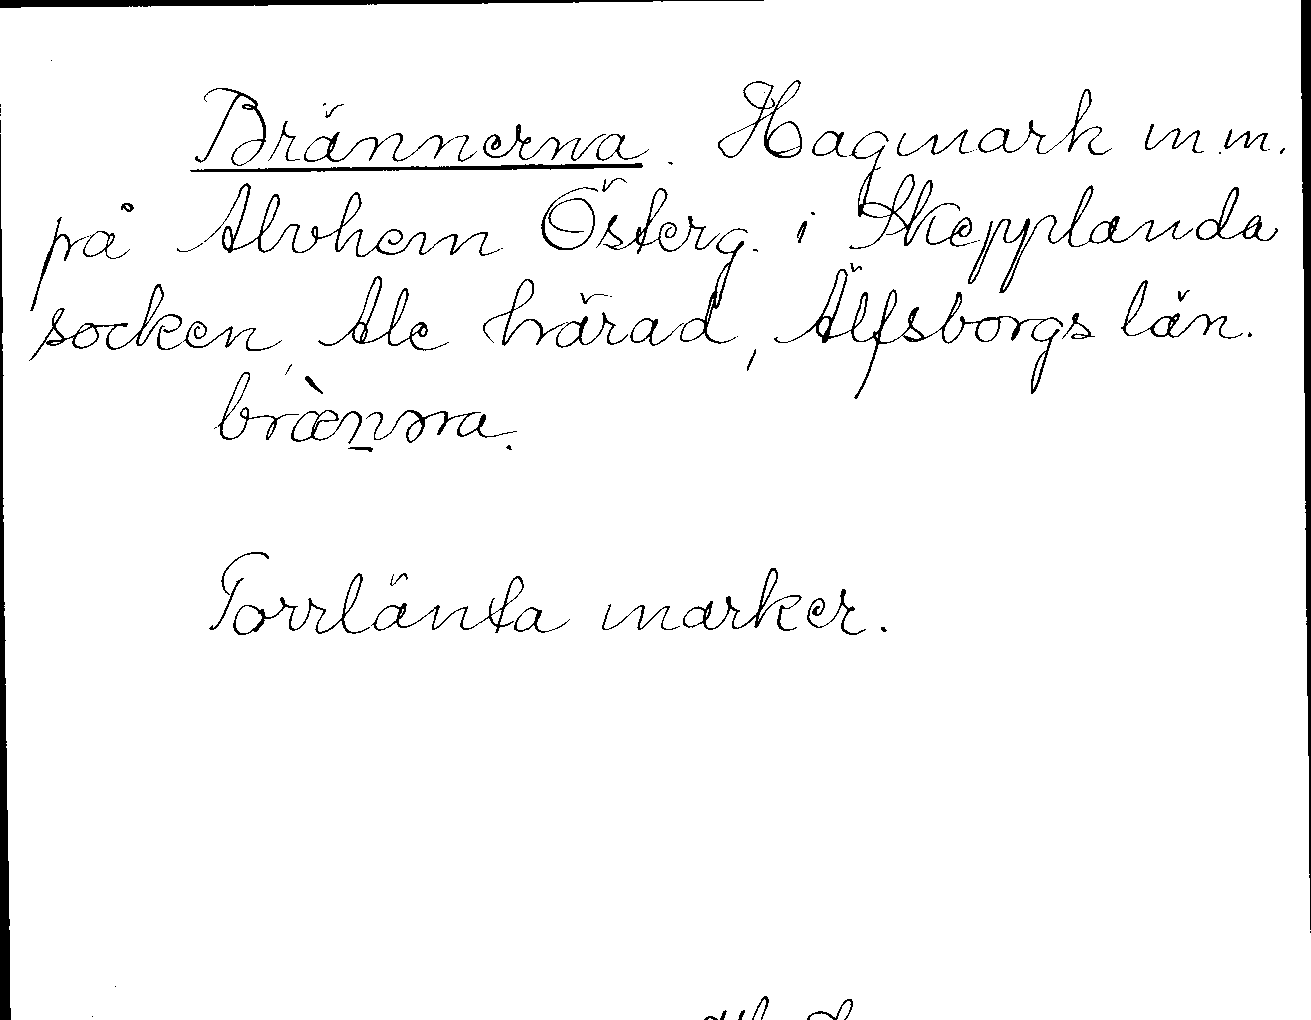 Brännerna. Hagmark m.m.
på Alvhem Österg. i Skepplanda
socken, Ale härad, Älfsborgs län.
bræ̀n̲əra.
Torrlänta marker.